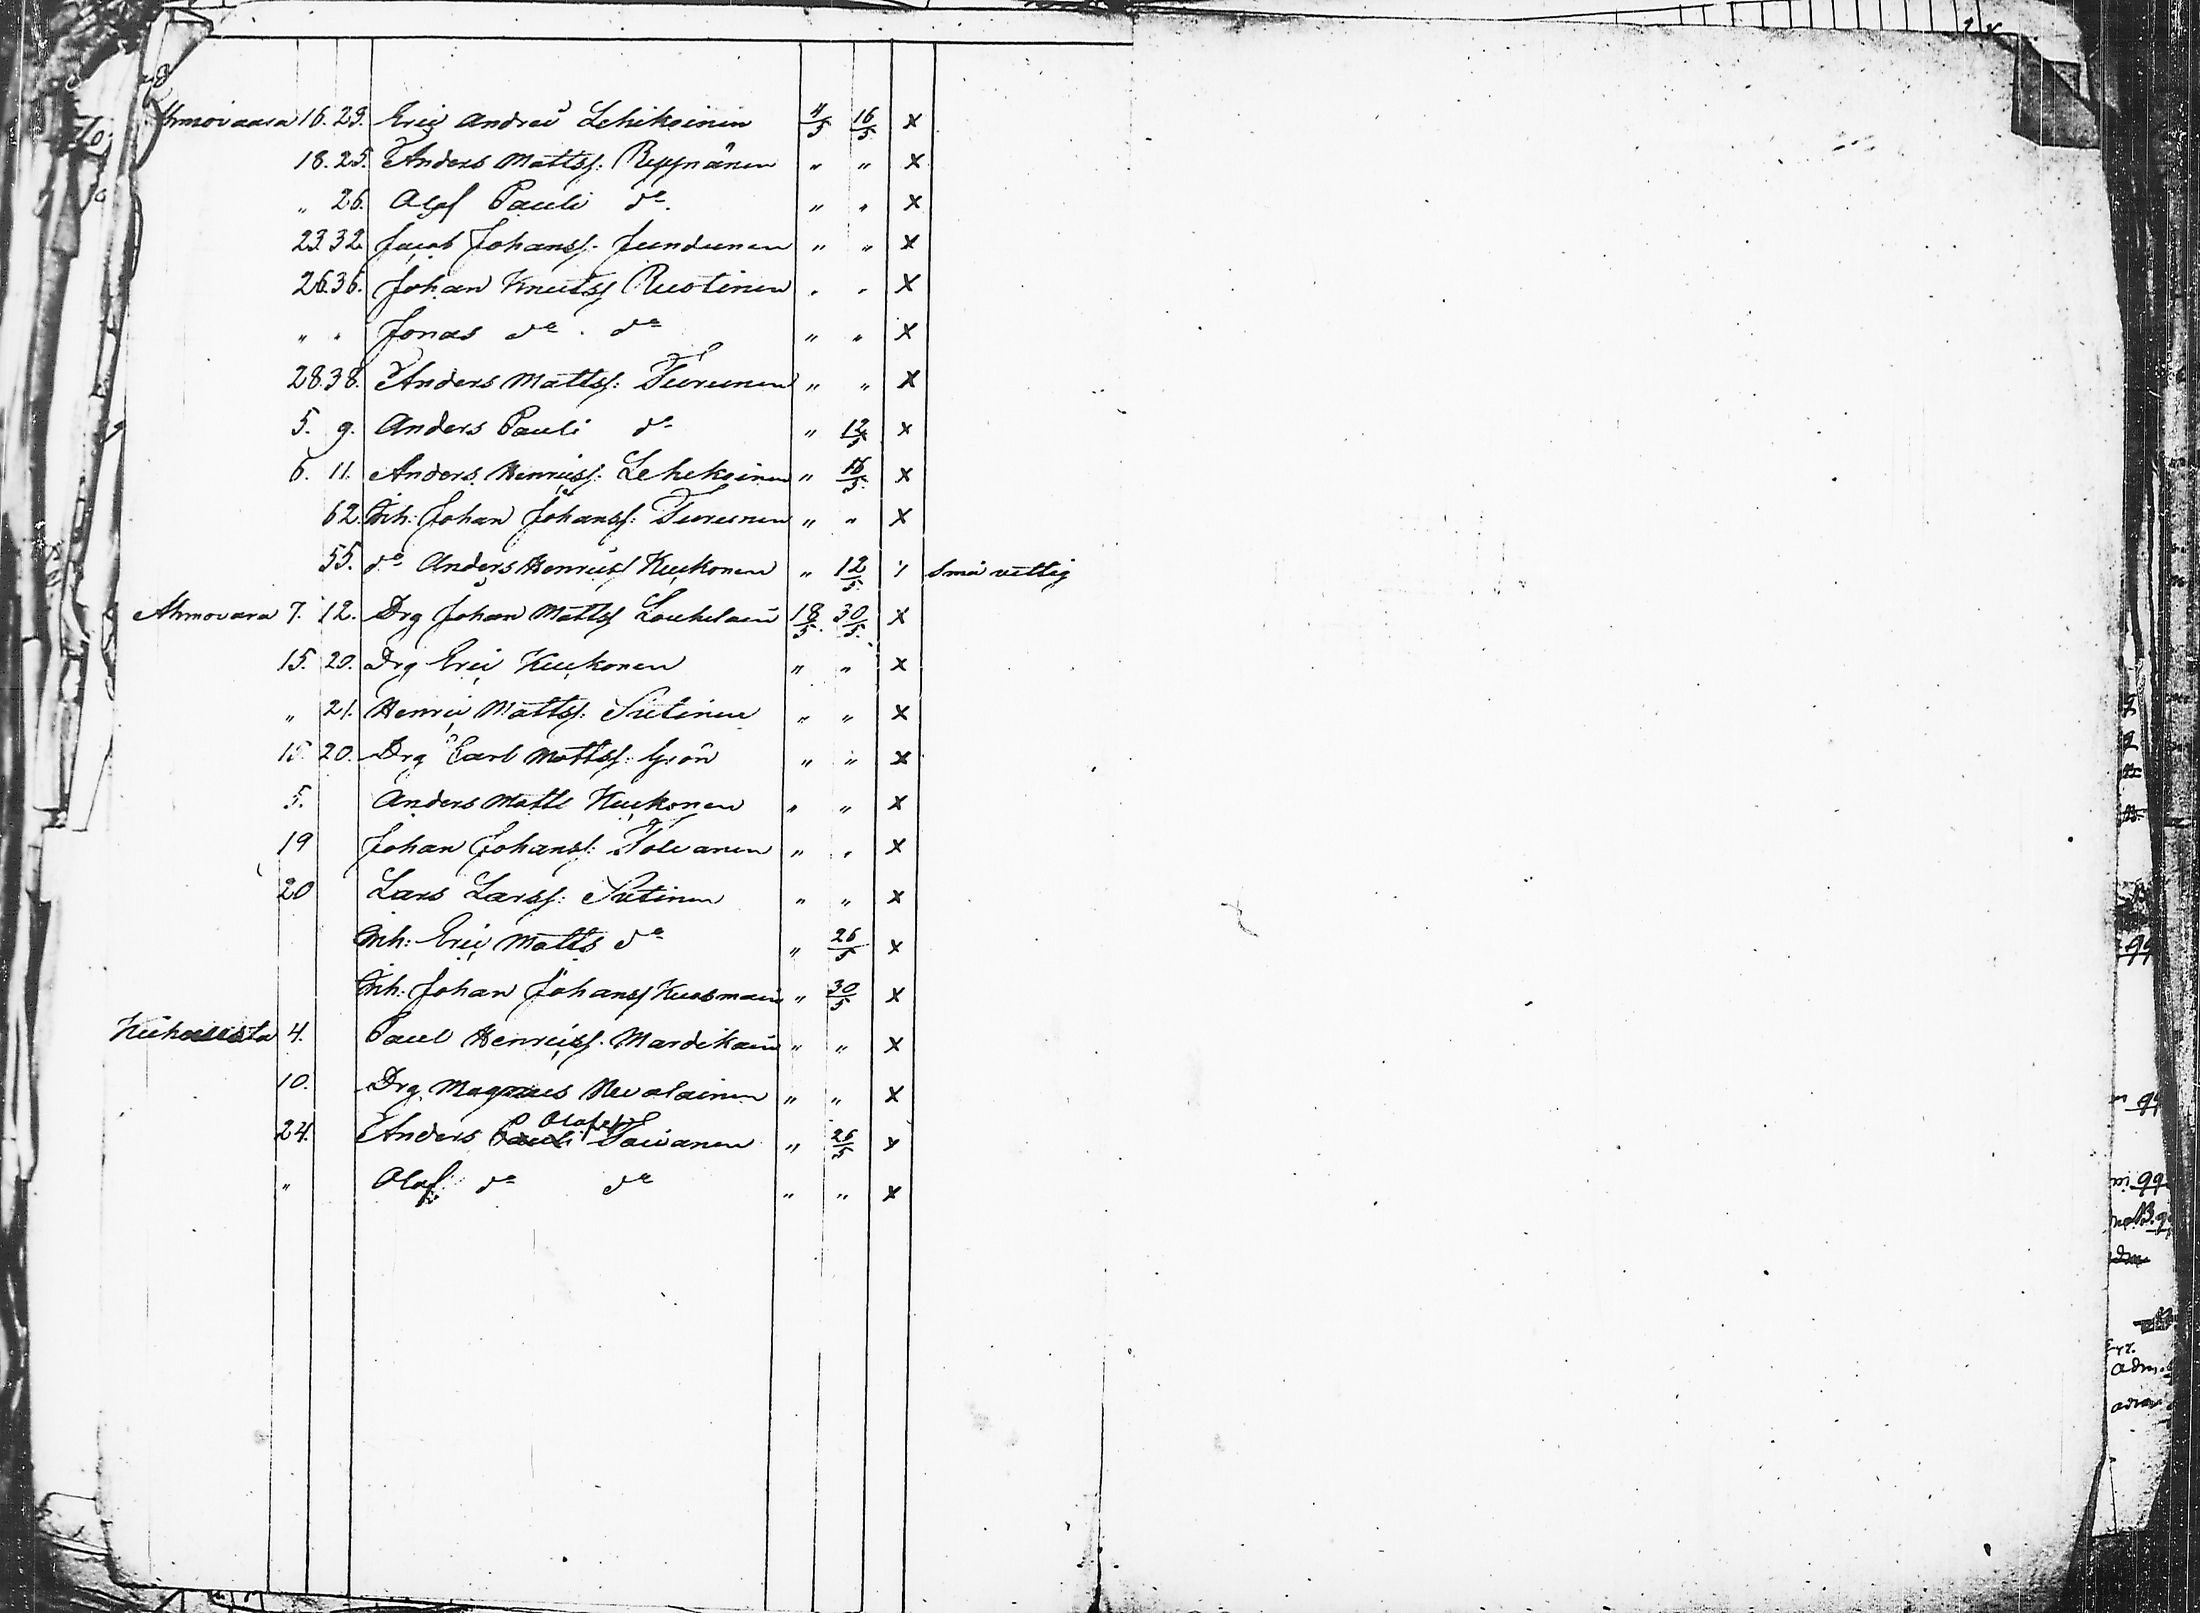 Ahmovaara 16. 23. Eric Andrei Lehikoinen 4/5 16/5 x
18. 25. Anders Mattss: Ryynänen " " x
" 26. Olof Pauli do " " x
23 32. Jacob Johanss. Jundunen " " x
26. 36. Johan Knutss Ruotinen " " x
" " Jonas do do " " x
28. 38. Anders Mattss: Turunen " " x
5. 9. Anders Pauli do " 12/5 x
6. 11. Anders Henrics: Lehikoinen " 16/5 x
62. Inh: Johan Johanss: Turunen " " x
55. do Anders Henrics Kukkonen " 12/5 x små vettig
Ahmovara 7. 12. Drg Johan Mattss Loukelain 18/5. 30/5. x
15. 20. Drg Eric Kukkonen " " x
" 21. Henric Mattss: Sutinen " " x
15 20. Drg Carl Mattss: Grön " " x
5. Anders Matts Kukkonen " " x
19 Johan Johanss: Tolvanen " " x
20 Lars Larss: Sutinen " " x
Inh: Eric Matts do " 26/5 x
Inh: Johan Johanss Kuosmain " 30/5 x
4. Paul Henrics. Mardikain " " x
10. Drg Magnus Nevalainen " " x
24. Anders Pauli Olofss Toivanen " 26/5 x
" Olof do do " " x